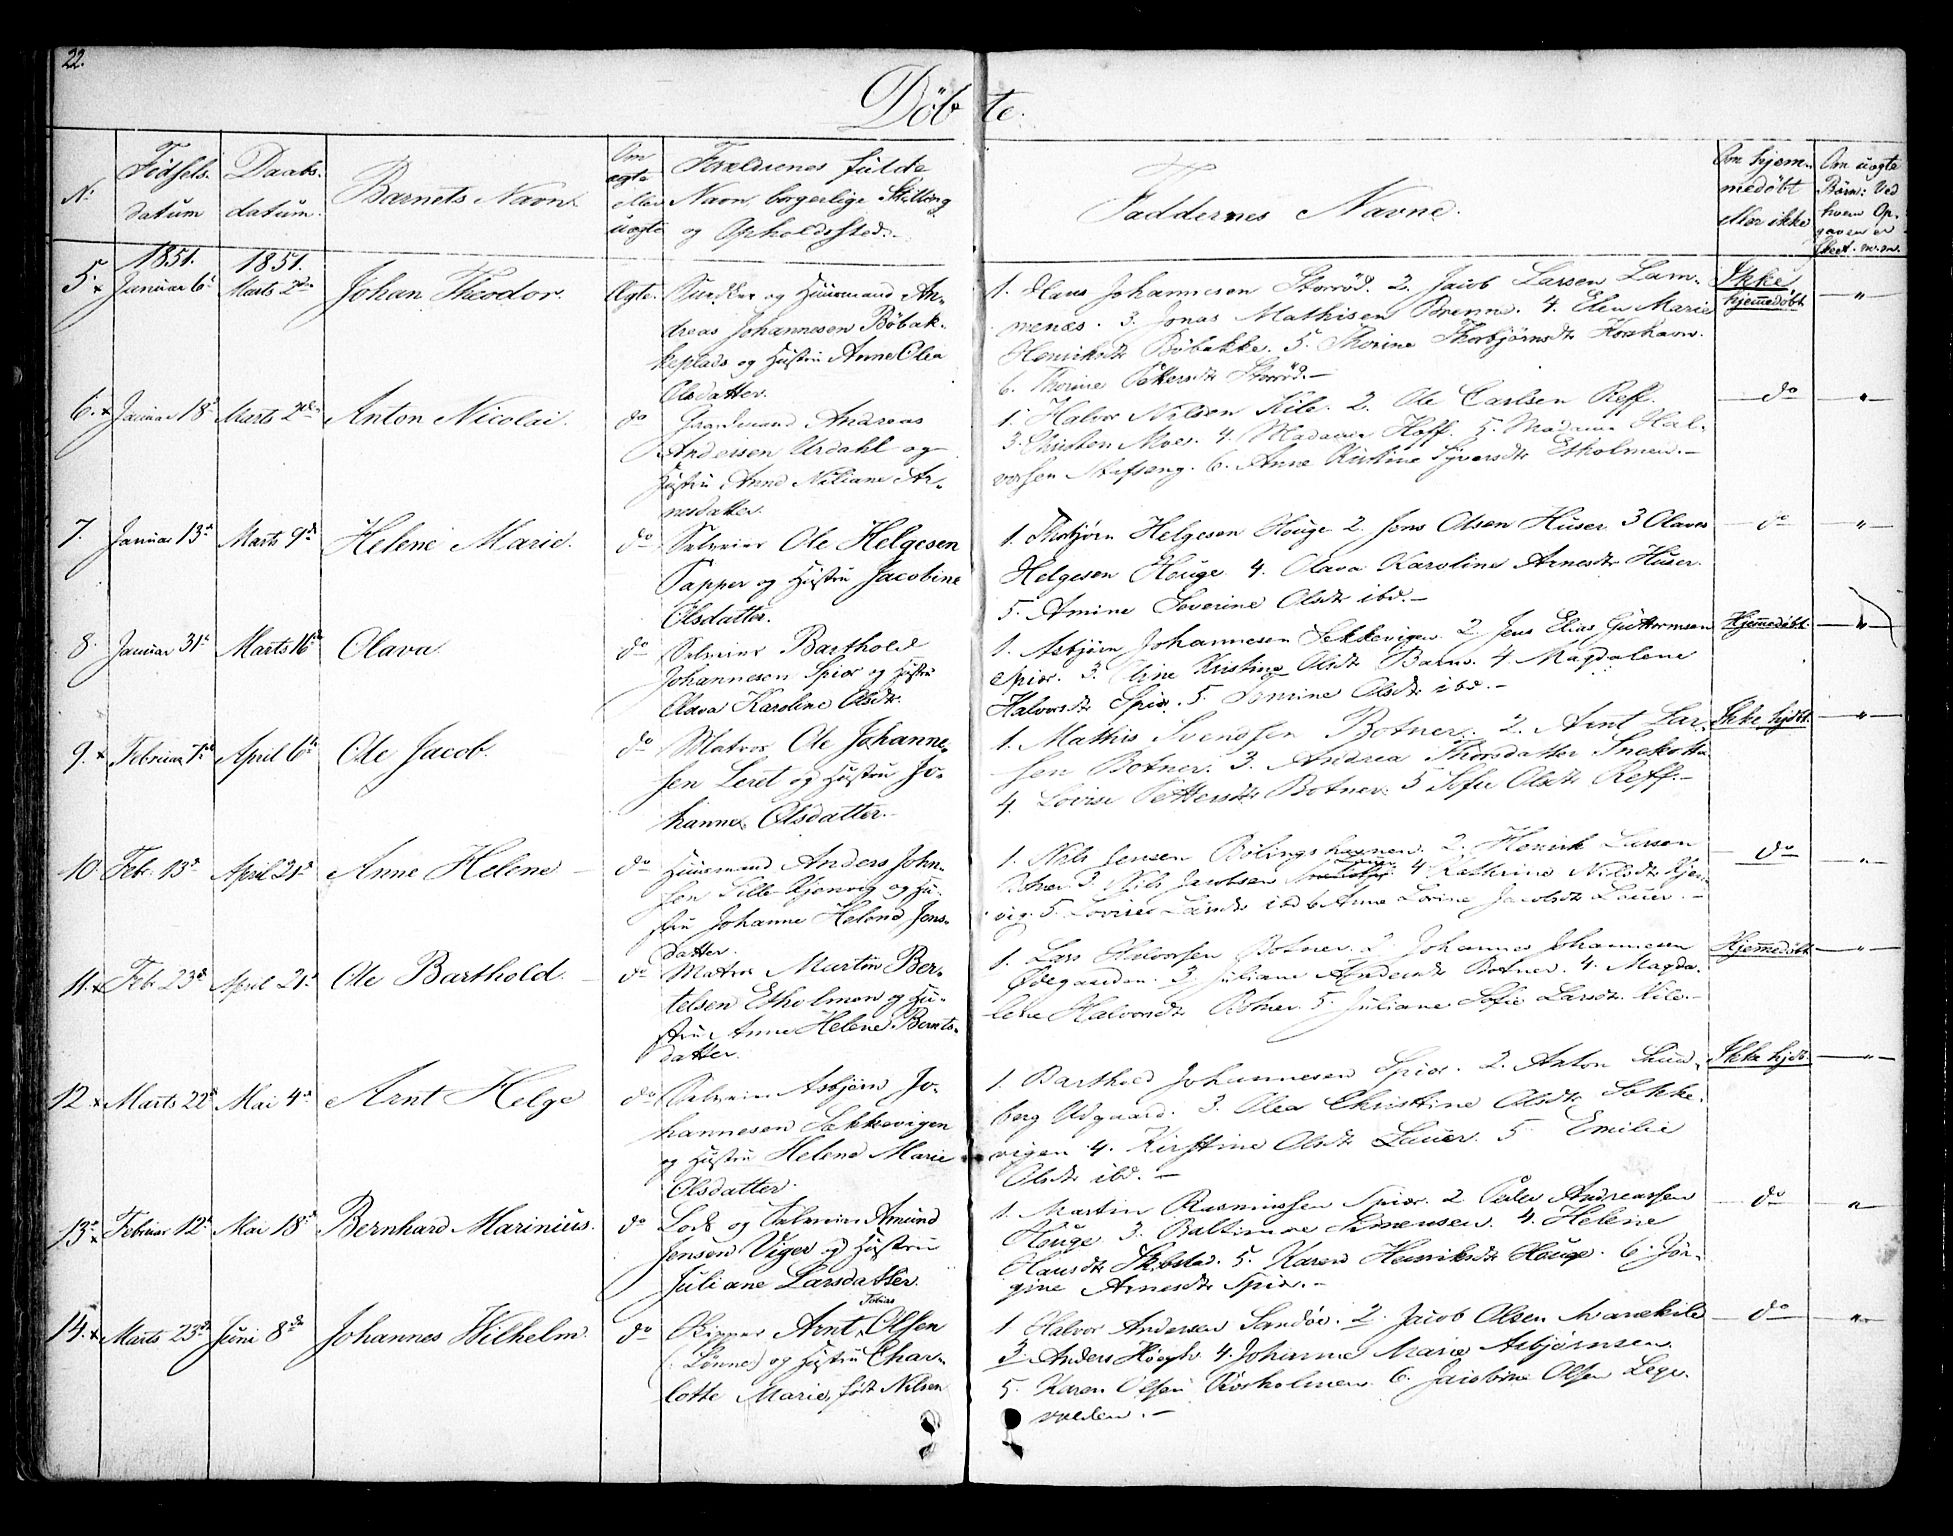 22.
Døbte.
No
Födsels-
datum
Daabs-
datum.
Barnets Navn.
Om
ægte
eller
uægte
Forældrenes fulde
Navn, borgerlige Stilling
og Opholdssted.
Faddernes Navne.
Om hjem-
medøbt
eller ikke
Om uægte
Børn: Ved
hvem Op-
gaven er
skeet. m.m.
1851.
1851.
5. x Januar 6te Marts 2den Johan Theodor. Ægte. og Huusmand An-
dreas Johannesen Bøbak-
keplads og Hustru Anne Olea
Olsdatter.
1. Hans Johannesen Storrød. 2. Jacob Larsen Lam-
menæs. 3. Jonas Mathisen Brenne. 4. Elen Marie
Henriksdtr Bøbakke. 5. Thorine Thorbjørnsdtr Korshavn.
6. Thorine Pettersdtr Storrød.-
Ikke
hjemmedøbt
"
6. x Januar 18de Marts 2den Anton Nicolai. do Gaardmand Andreas
Andersen Urdahl og
Hustru Anne Niliane Ar-
nesdatter.
1. Halvor Nilsen Kile. 2. Ole Carlsen Reff.
3. Christen Moes. 4. Madame Hoff. 5. Madame Hal-
vorsen 6. Anne Kirstine Syversdtr Etholmen.-
do
"
7. Januar 13de Marts 9de Helene Marie. do Selveier Ole Helgesen
Tapper og Hustru Jacobine
Olsdatter.
1. Thorbjørn Helgesen Houge 2. Jens Olsen Huser. 3 Olaves
Helgesen Houge. 4. Olava Karoline Arnesdtr Huser.
5. Amine Severine Olsdtr ibd.-
do
"
8. Januar 31te Marts 16de Olava do Selveier Barthold
Johannesen Spior og Hustru
Olava Karoline Olsdtr.
1. Asbjørn Johannesen Sekkevigen. 2. Jens Elias Guttormsen
Spior. 3. Kristine Olsdtr 4. Magdalene
Halvorsdtr Spior. 5. Olsdtr ibd.-
Hjemmedøbt
"
9. x Februar 7de April 6te Ole Jacob. do Matros Ole Johanne-
sen Leret og Hustru Jo-
hanne Olsdatter.
1. Mathis Svendsen Botner. 2. Arnt Lar-
sen Botner. 3. Andrea Thorsdatter
4. Lovise Pettersdtr Botner. 5 Sofie Olsdtr Reff.-
Ikke hjdbt.
"
10. Feb. 13de April 21de Anne Helene do Huusmand Anders John-
sen Kjenvig og Hu-
stru Johanne Helene Jens-
datter.
1. Nils Jensen Bølingshavnen. 2. Henrik Larsen
3. Nils Jacobsen 4 Kathrine Nilsdtr Kjen-
vig. 5. Lovise Larsdtr ibd 6 Anne Lovine Jacobsdtr Lauer.-
do
"
11. x Feb. 23de April 21de Ole Barthold. do Matros Martin Ber-
telsen Etholmen og Hu-
stru Anne Helene Bernts-
datter.
1. Lars Halvorsen Botner. 2 Johannes Johannesen
Ødegaarden. 3. Juliane Andersdtr Botner. 4. Magda-
lene Halvorsdtr Botner. 5. Juliane Sofie Larsdtr. Kile.-
Hjemmedøbt
"
12. x Marts 22de Mai 4de Arnt Helge do Selveier Asbjørn Jo-
hannesen Sækkevigen
og Hustru Helene Marie
Olsdatter.
1. Barthold Johannesen Spior. 2. Anton
berg 3. Olea Christine Olsdtr Sække-
vigen 4. Kirstine Olsdtr Lauer. 5. Emilie
Olsdtr ibd.-
Ikke hjdb.
"
13. x Februar 12te Mai 18de Bernhard Marinius. do Lods og Selveier Amund
Jensen Viger og Hustru
Juliane Larsdatter.
1. Martin Rasmussen Spior. 2 Peder Andreassen
Houge. 3. Simensen. 4. Helene
Hansdtr Skibstad. 5. Karen Henriksdtr Houge. 6. Jør-
gine Arnesdtr Spior.-
do
"
14. x Marts 23de Juni 8de Johannes Wilhelm. do Skipper Arnt Tobias Olsen
(Lønne) og Hustru Char-
lotte Marie, født Nilsen
1. Halvor Andersen Sandøe. 2. Jacob Olsen
3. Anders Höegh. 4. Johanne Marie Asbjørnsen.
5. Karen Olsen 6. Jacobine Olsen Lege-
volden.-
do
"